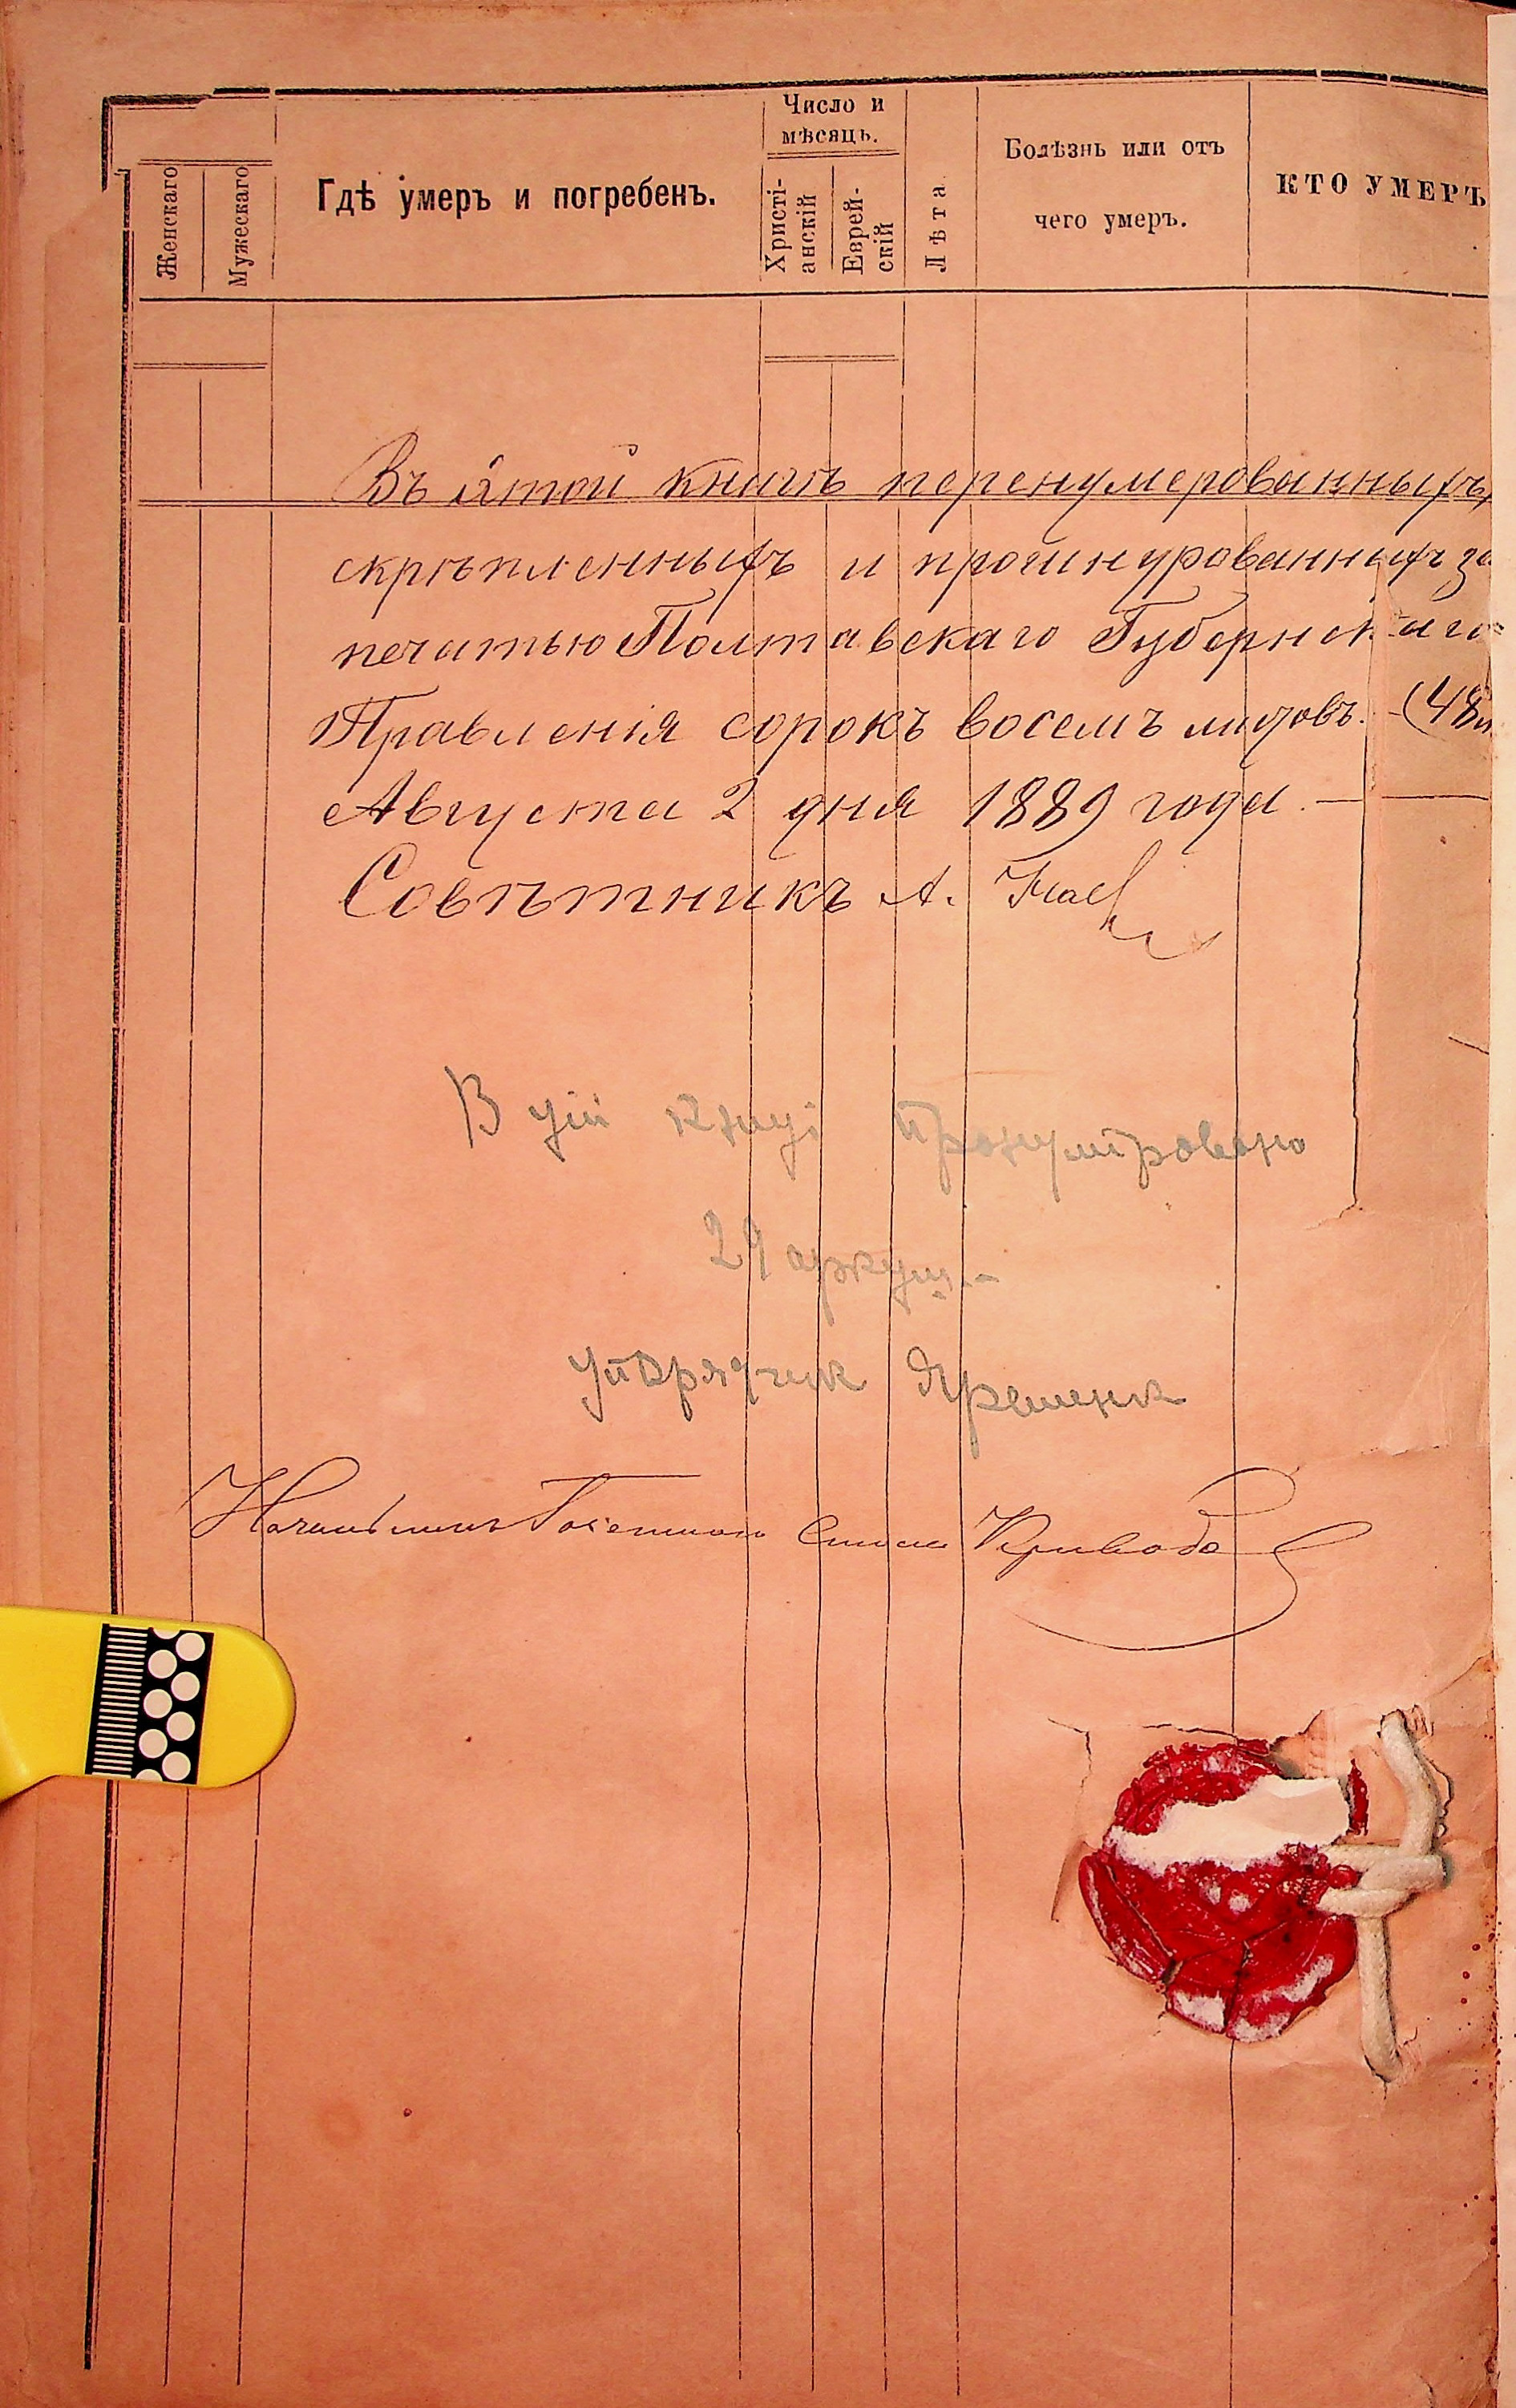 Женскаго
Мужескаго
Гдѣ умеръ и погребенъ.
Число и
мѣсяцъ.
Христі-
анскій
Еврей-
скій
Лѣта
Болѣзнь или отъ
чего умеръ.
КТО УМЕРЪ
Въ этой книгѣ перенумерованныхъ,
скрѣпленныхъ и прошнурованныхъ за
печатью Полтавскаго Губернскаго
Правленія сорокъ восемъ листовъ. (48
Августа 2 дня 1889 года.
Совѣтникъ А.
В цій книзі пронумеровано
29 аркуш.
Упорядчик